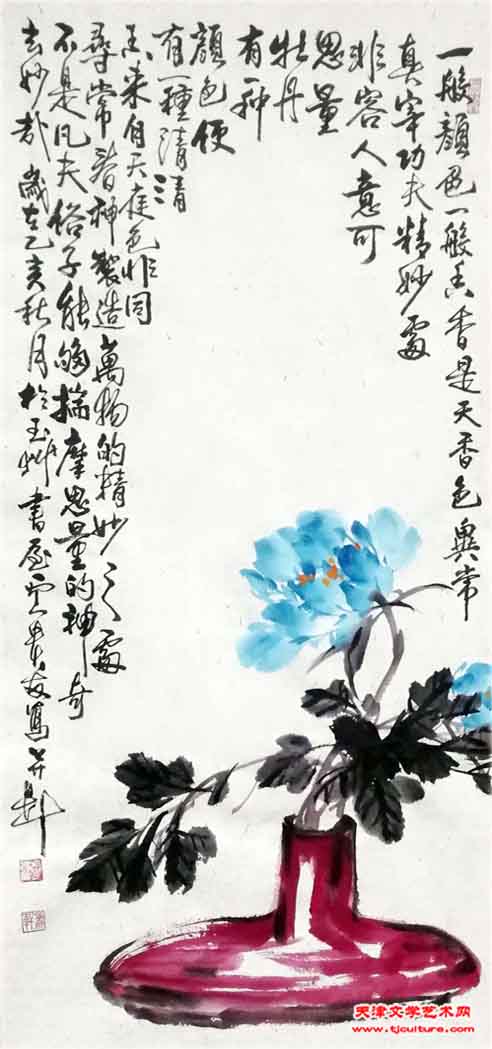 一般顔色一般香香是天香色異常
真宰功夫精妙處
非容人意可
思量
牡丹
有一种
顔色便
有一種清清
香来自天庭色非同
尋常皆神製造萬物的精妙之處
不是凡夫俗子能夠揣摩思量的神奇
妙哉歲在己亥秋月於玉書屋寫并
天津文学艺术网
www.tjculture.com